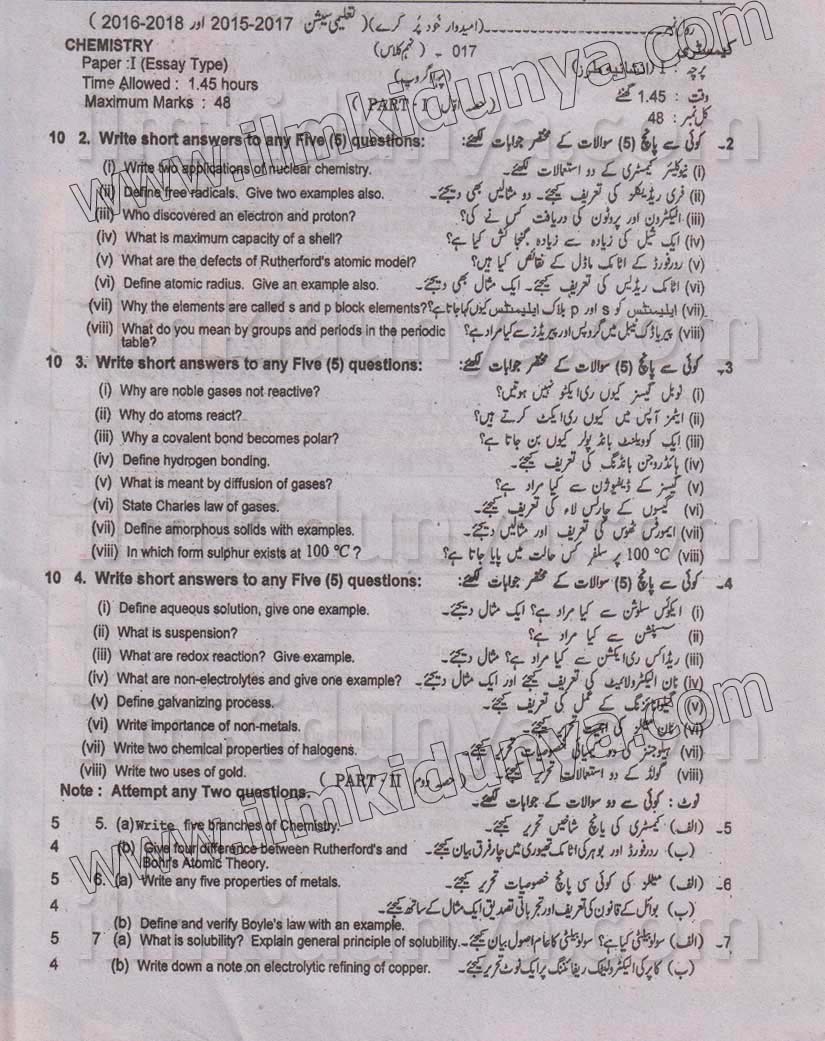 رول نمبر ـــــــــــــ (امیدوار خود پُر کرے) (تعلیمی سیشن 2017-2015 اور 2018-2016)
CHEMISTRY 017 - نہم کلاس) کیمسٹری
Paper : I (Essay Type) (پہلا گروپ) پرچہ : I (انشائیہ طرز)
Time Allowed : 1.45 hours وقت : 1.45 گھنٹے
Maximum Marks : 48 (PART - I حصہ اول) کل نمبر : 48
10 2. Write short answers to any Five (5) questions: 2ـ کوئی سے پانچ (5) سوالات کے مختصر جوابات لکھئے:
(i) Write two applications of nuclear chemistry. (i) نیوکلیئر کیمسٹری کے دو استعمالات لکھئے۔
(ii) Define free radicals. Give two examples also. (ii) فری ریڈیکلز کی تعریف کیجئے۔ دو مثالیں بھی دیجئے۔
(iii) Who discovered an electron and proton? (iii) الیکٹرون اور پروٹون کی دریافت کس نے کی؟
(iv) What is maximum capacity of a shell? (iv) ایک شیل کی زیادہ سے زیادہ گنجائش کیا ہے؟
(v) What are the defects of Rutherford's atomic model? (v) ردرفورڈ کے اٹامک ماڈل کے نقائص کیا ہیں؟
(vi) Define atomic radius. Give an example also. (vi) اٹامک ریڈیس کی تعریف کیجئے۔ ایک مثال بھی دیجئے۔
(vii) Why the elements are called s and p block elements? (vii) ایلیمنٹس کو s اور p بلاک ایلیمنٹس کیوں کہا جاتا ہے؟
(viii) What do you mean by groups and periods in the periodic table? (viii) پیریاڈک ٹیبل میں گروپس اور پیریڈز سے کیا مراد ہے؟
10 3. Write short answers to any Five (5) questions: 3ـ کوئی سے پانچ (5) سوالات کے مختصر جوابات لکھئے:
(i) Why are noble gases not reactive? (i) نوبل گیسز کیوں ری ایکٹو نہیں ہوتیں؟
(ii) Why do atoms react? (ii) ایٹمز آپس میں کیوں ری ایکٹ کرتے ہیں؟
(iii) Why a covalent bond becomes polar? (iii) ایک کوویلنٹ بانڈ پولر کیوں بن جاتا ہے؟
(iv) Define hydrogen bonding. (iv) ہائڈروجن بانڈنگ کی تعریف کیجئے۔
(v) What is meant by diffusion of gases? (v) گیسز کے ڈیفیوژن سے کیا مراد ہے؟
(vi) State Charles law of gases. (vi) گیسوں کے چارلس لاء کی تعریف کیجئے۔
(vii) Define amorphous solids with examples. (vii) ایمورفس ٹھوس کی تعریف اور مثالیں دیجئے۔
(viii) In which form sulphur exists at 100 °C ? (viii) 100 °C پر سلفر کس حالت میں پایا جاتا ہے؟
10 4. Write short answers to any Five (5) questions: 4ـ کوئی سے پانچ (5) سوالات کے مختصر جوابات لکھئے:
(i) Define aqueous solution, give one example. (i) ایکوئس سلوشن سے کیا مراد ہے؟ ایک مثال دیجئے۔
(ii) What is suspension? (ii) سسپنشن سے کیا مراد ہے؟
(iii) What are redox reaction? Give example. (iii) ریڈاکس ری ایکشن سے کیا مراد ہے؟ مثال دیجئے۔
(iv) What are non-electrolytes and give one example? (iv) نان الیکٹرولائیٹ کی تعریف کیجئے اور ایک مثال دیجئے۔
(v) Define galvanizing process. (v) گیلوانائزنگ کے عمل کی تعریف کیجئے۔
(vi) Write importance of non-metals. (vi) نان میٹلز کی اہمیت تحریر کیجئے۔
(vii) Write two chemical properties of halogens. (vii) ہیلوجنز کی دو کیمیائی خصوصیات تحریر کیجئے۔
(viii) Write two uses of gold. (viii) گولڈ کے دو استعمالات تحریر کیجئے۔
(PART - II حصہ دوم)
Note : Attempt any Two questions. نوٹ : کوئی سے دو سوالات کے جوابات لکھئے۔
5 5. (a) Write five branches of Chemistry. 5ـ (الف) کیمسٹری کی پانچ شاخیں تحریر کیجئے۔
4 (b) Give four difference between Rutherford's and Bohr's Atomic Theory. (ب) ردرفورڈ اور بوہر کی اٹامک تھیوری میں چار فرق بیان کیجئے۔
5 6. (a) Write any five properties of metals. 6ـ (الف) میٹلز کی کوئی سی پانچ خصوصیات تحریر کیجئے۔
4 (b) Define and verify Boyle's law with an example. (ب) بوائل کے قانون کی تعریف اور تجرباتی تصدیق ایک مثال کے ساتھ کیجئے۔
5 7 (a) What is solubility? Explain general principle of solubility. 7ـ (الف) سولوبیلٹی کیا ہے؟ سولوبیلٹی کا عام اصول بیان کیجئے۔
4 (b) Write down a note on electrolytic refining of copper. (ب) کاپر کی الیکٹرولیٹک ریفائننگ پر ایک نوٹ تحریر کیجئے۔
www.ilmkidunya.com
www.ilmkidunya.com
ilmkidunya.com
ilmkidunya.com
ilmkidunya.com
ilmkidunya.com
ilmkidunya.com